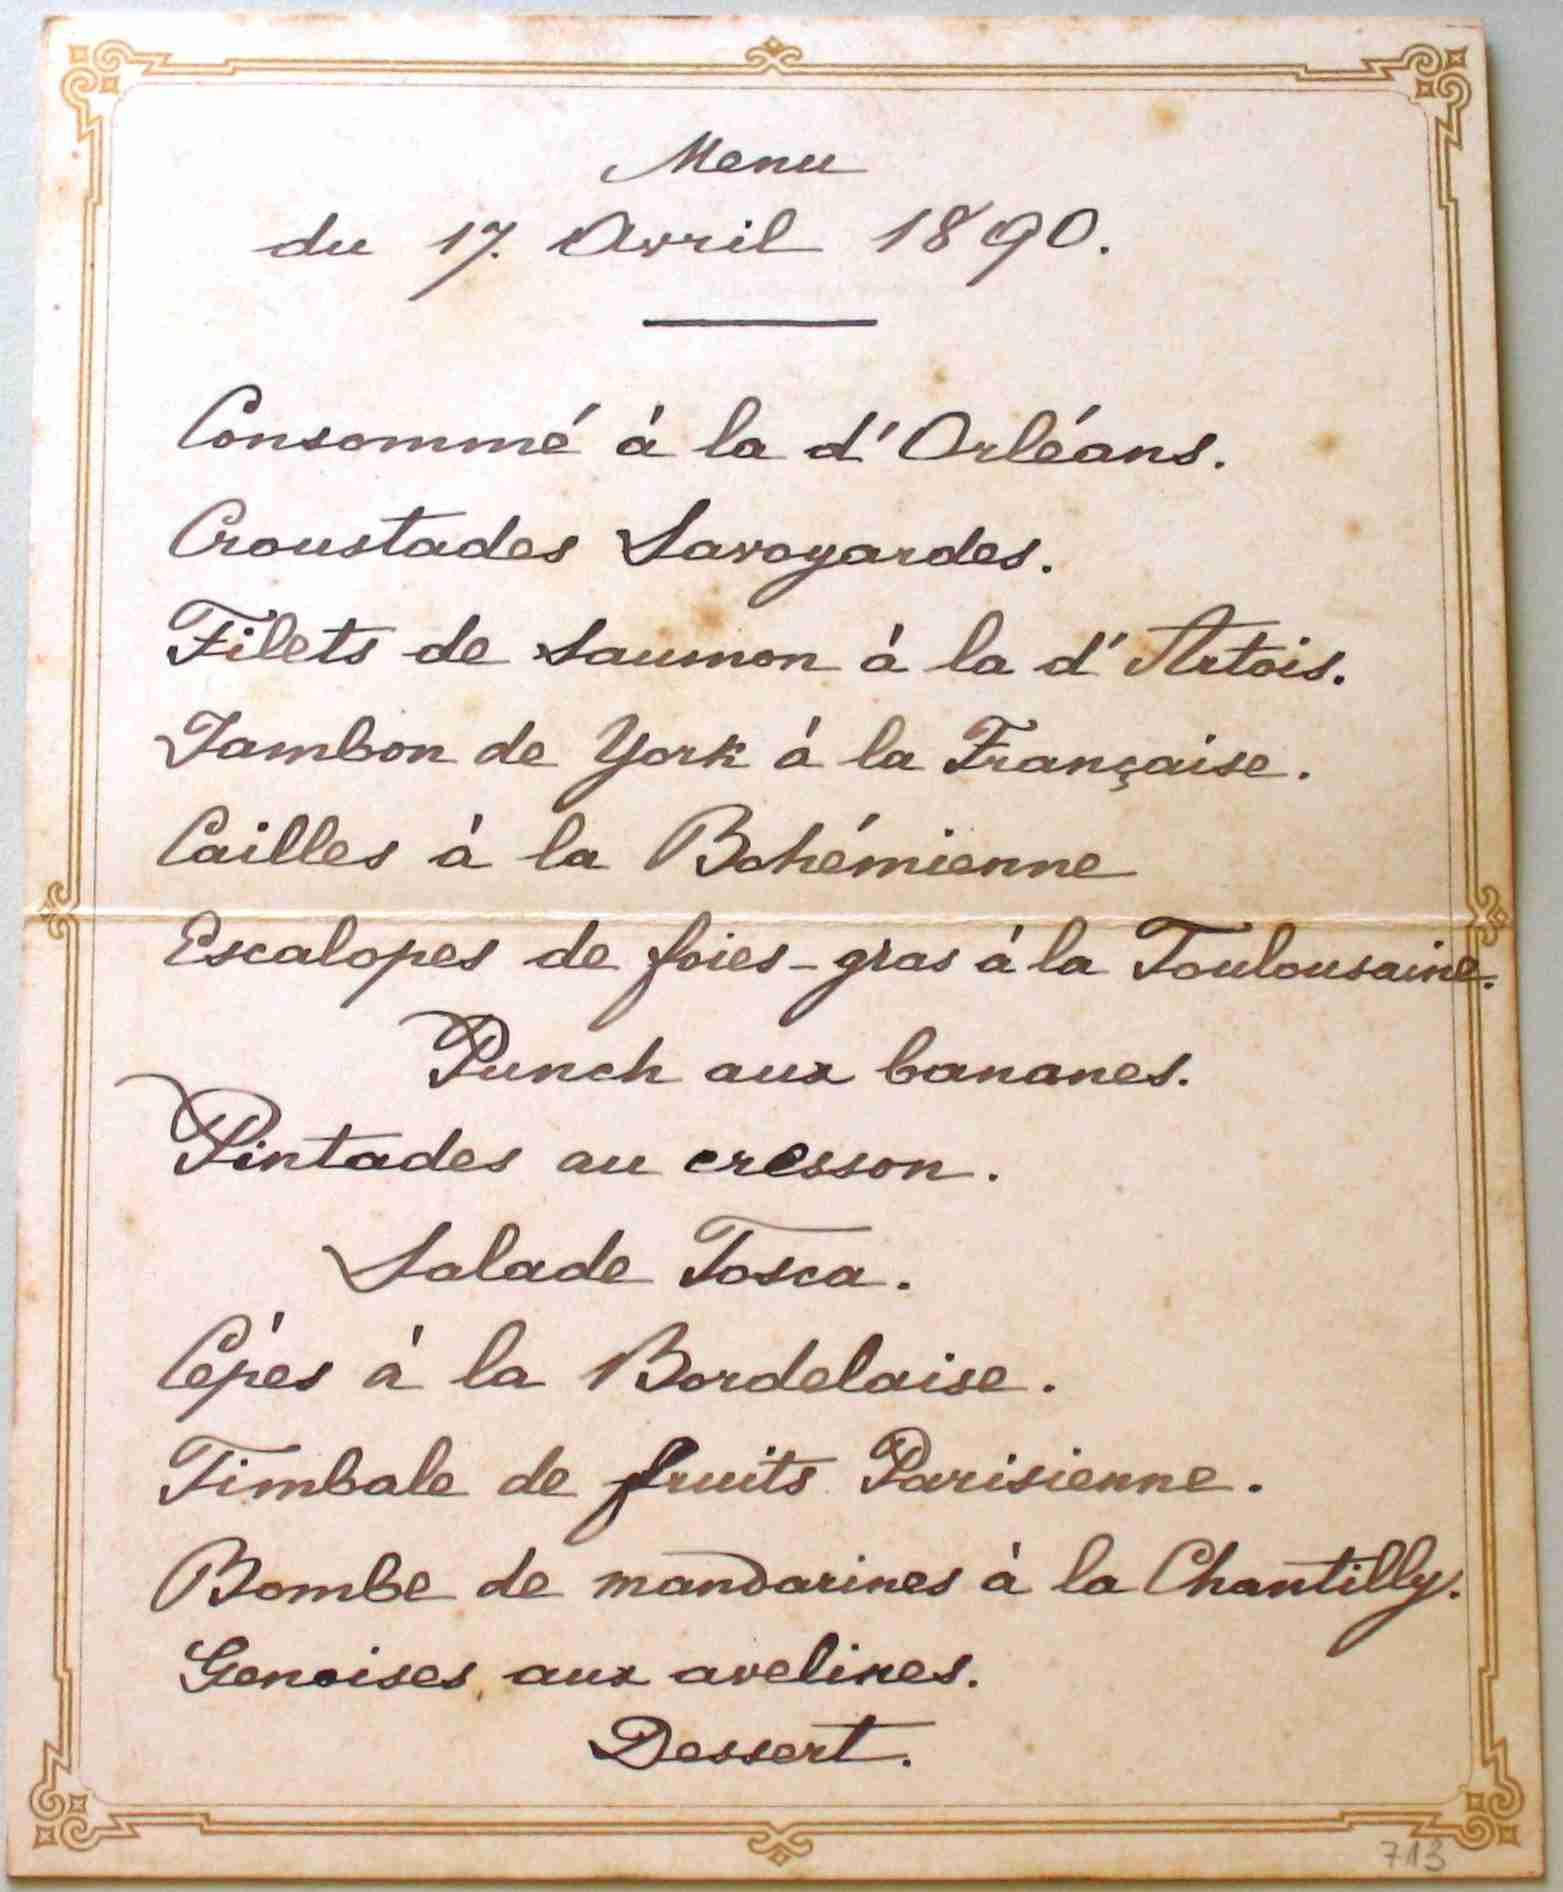 Menu
du 17. Avril 1890.
Consommé à la d'Orléans.
Croustades Savoyardes.
Filets de Saumon à la d'Artois.
Jambon de York à la Française.
Cailles à la Bohémienne
Escalopes de foies-gras à la Toulousaine.
Punch aux bananes.
Pintades au cresson.
Salade Tosca.
Cèpes à la Bordelaise.
Timbale de fruits Parisienne.
Bombe de mandarines à la Chantilly.
Genoises aux avelines.
Dessert.
713